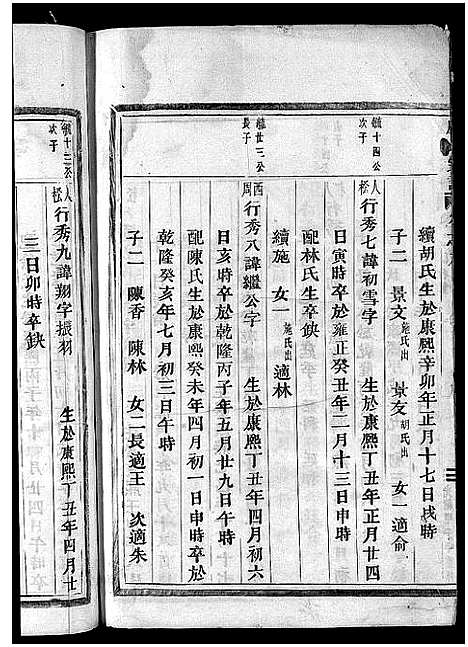 續胡氏生於康熙辛卯年正月十七日戌時
子二 景文施氏出 景友胡氏出 女一適俞
毓十四公次子
松人行秀七諱初雪字 生於康熙丁丑年正月廿四
日寅時卒於雍正癸丑年二月十三日申時
配林氏生卒缺
續施 女一施氏出適林
繼廿三公長子
周西行秀八諱繼公字 生於康熙丁丑年四月初六
日亥時卒於乾隆丙子年五月廿九日午時
配陳氏生於康熙癸未年四月初一日申時卒於
乾隆癸亥年七月初三日午時
子二 陳香 陳林 女二長適王 次適朱
毓十三公次子
松人行秀九諱翔字振羽 生於康熙丁丑年四月廿
三日卯時卒缺